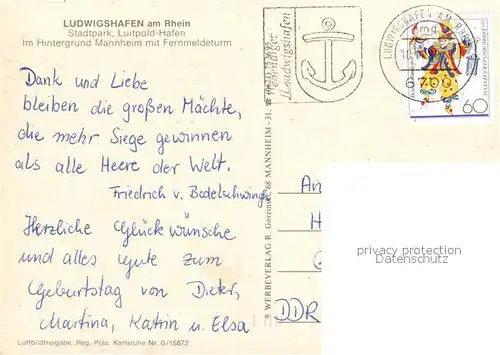 LUDWIGSHAFEN am Rhein
Stadtpark, Luitpold-Hafen
Im Hintergrund Mannheim mit Fernmeldeturm
Dank und Liebe
bleiben die großen Mächte,
die mehr Siege gewinnen
als alle Heere der Welt.
Friedrich v. Bodelschwingh
Herzliche Glückwünsche
und alles Gute zum
Geburtstag von Dieter,
Martina, Katrin u. Elsa
Luftbildfreigabe: Reg. Präs. Karlsruhe Nr. 0/15872
© WERBEVERLAG R. Gorzinski, 68 MANNHEIM-31
Ludwigshafen
LUDWIGSHAFEN AM RHEIN
mg
6700
60
An
H
DDR
privacy protection
Datenschutz